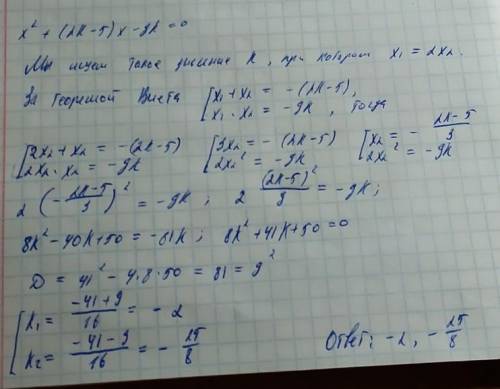 x² + (2k-5)x - 9k = 0
Мы ищем такое значение k, при котором x₁ = 2x₂.
За теоремой Виета [x₁+x₂ = -(2k-5),
x₁·x₂ = -9k, тогда
[2x₂+x₂ = -(2k-5) [3x₂ = -(2k-5) [x₂ = - (2k-5)/3
2x₂·x₂ = -9k 2x₂² = -9k 2x₂² = -9k
2(-(2k-5)/3)² = -9k; 2 (2k-5)²/9 = -9k;
8k²-40k+50 = -81k; 8k²+41k+50=0
D = 41²-4·8·50 = 81 = 9²
[k₁ = (-41+9)/16 = -2
k₂ = (-41-9)/16 = - 25/8 Ответ: -2, - 25/8